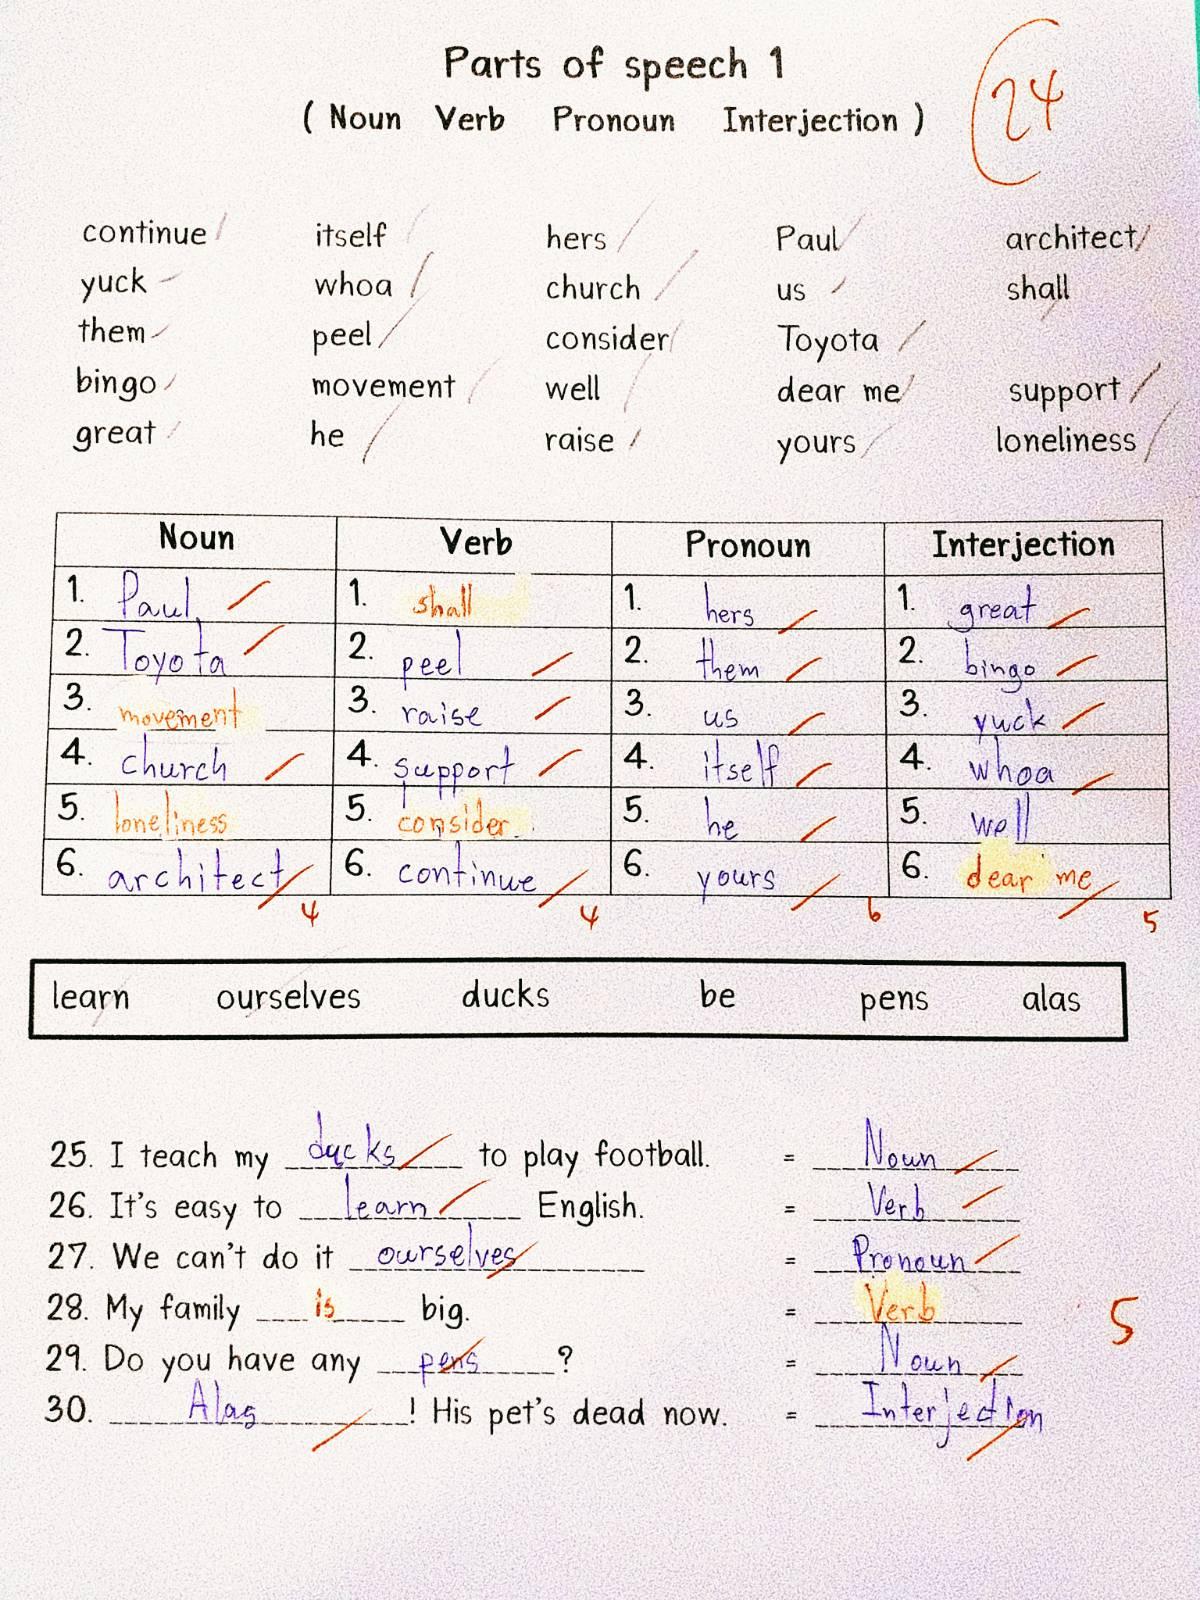 Parts of speech 1
( Noun Verb Pronoun Interjection )
24
continue itself hers Paul architect
yuck whoa church us shall
them peel consider Toyota
bingo movement well dear me support
great he raise yours loneliness
Noun Verb Pronoun Interjection
1. Paul 1. shall 1. hers 1. great
2. Toyota 2. peel 2. them 2. bingo
3. movement 3. raise 3. us 3. yuck
4. church 4. support 4. itself 4. whoa
5. loneliness 5. consider 5. he 5. well
6. architect 6. continue 6. yours 6. dear me
4 4 6 5
learn ourselves ducks be pens alas
25. I teach my ducks to play football. = Noun
26. It's easy to learn English. = Verb
27. We can't do it ourselves = Pronoun
28. My family is big. = Verb
5
29. Do you have any pens ? = Noun
30. Alas ! His pet's dead now. = Interjection